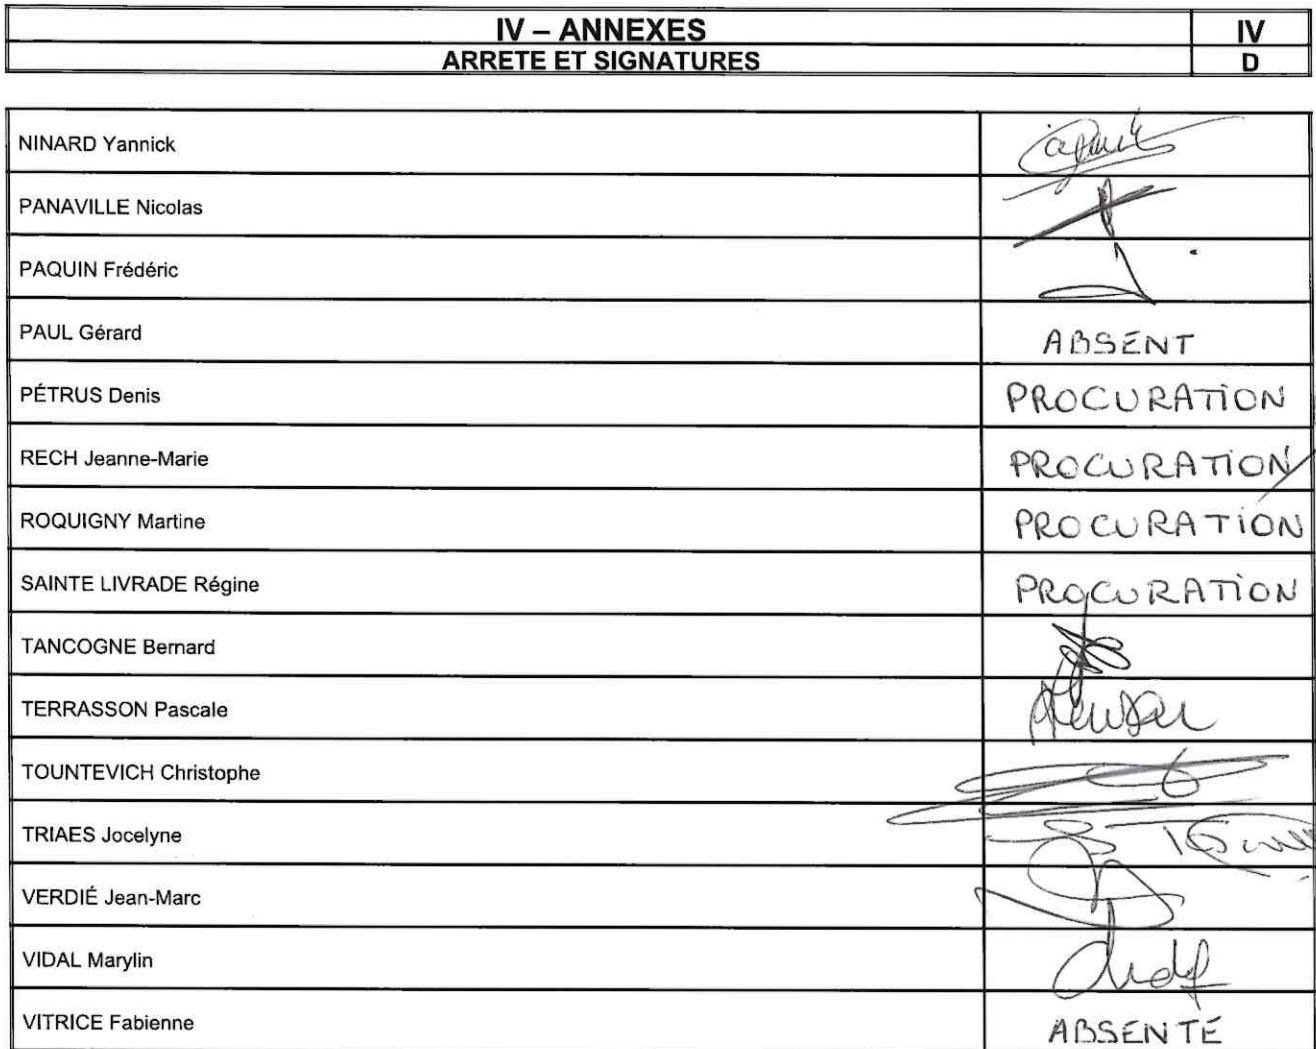 IV – ANNEXES IV
ARRETE ET SIGNATURES D
NINARD Yannick
PANAVILLE Nicolas
PAQUIN Frédéric
PAUL Gérard ABSENT
PÉTRUS Denis PROCURATION
RECH Jeanne-Marie PROCURATION
ROQUIGNY Martine PROCURATION
SAINTE LIVRADE Régine PROCURATION
TANCOGNE Bernard
TERRASSON Pascale
TOUNTEVICH Christophe
TRIAES Jocelyne
VERDIÉ Jean-Marc
VIDAL Marylin
VITRICE Fabienne ABSENTE